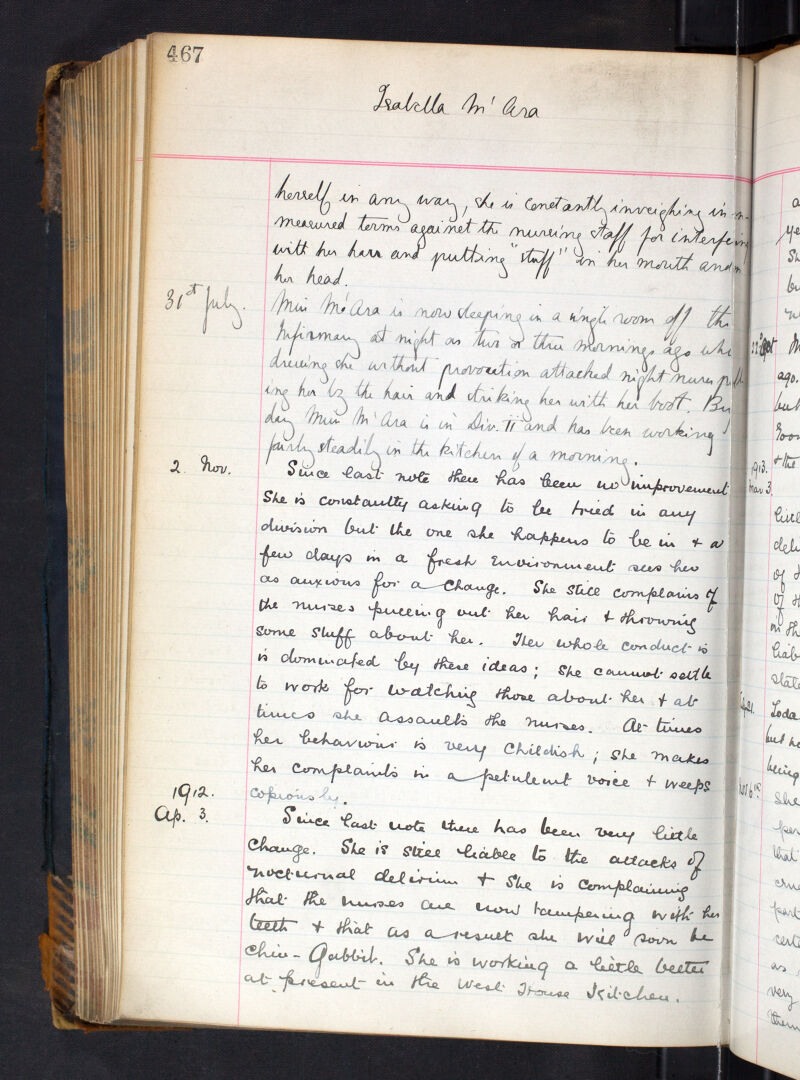 467
Isabella McAra
herself in any way, she is constantly inveighing in un-
measured terms against the nursing staff for interfering
with her hair and putting "stuff" in her mouth and on
her head.
31st July. Miss McAra is now sleeping in a single room off the
Infirmary at night as two or three mornings ago while
dressing she without provocation attacked night nurse pull
ing her by the hair and striking her with her boot. By
day Miss McAra is in Div. II and has been working
fairly steadily in the kitchen of a morning.
2 Nov. Since last note there has been no improvement.
She is constantly asking to be tried in any
division but the one she happens to be in & a
few days in a fresh environment sees her
as anxious for a change. She still complains of
the nurses pulling out her hair & throwing
some stuff about her. Her whole conduct is
is dominated by these ideas; she cannot settle
to work for watching those about her & at
times she assaults the nurses. At times
her behaviour is very childish; she makes
her complaints in a petulent voice & weeps
copiously.
1912.
Ap. 3. Since last note there has been very little
change. She is still liable to the attacks of
nocturnal delirium & she is complaining
that the nurses are now tampering with her
teeth & that as a result she will soon be
chin-Gabbit. She is working a little better
at present in the West House Kitchen.
ago.
but
& the
1913.
Mar 3.
of
of
state
but he
being
She
that
as
very
them